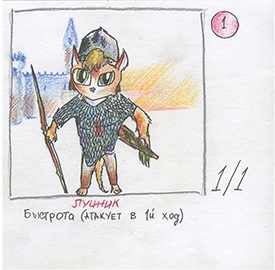 1
ЛУЧНИК
БЫСТРОТА (АТАКУЕТ В 1Й ХОД)
1/1